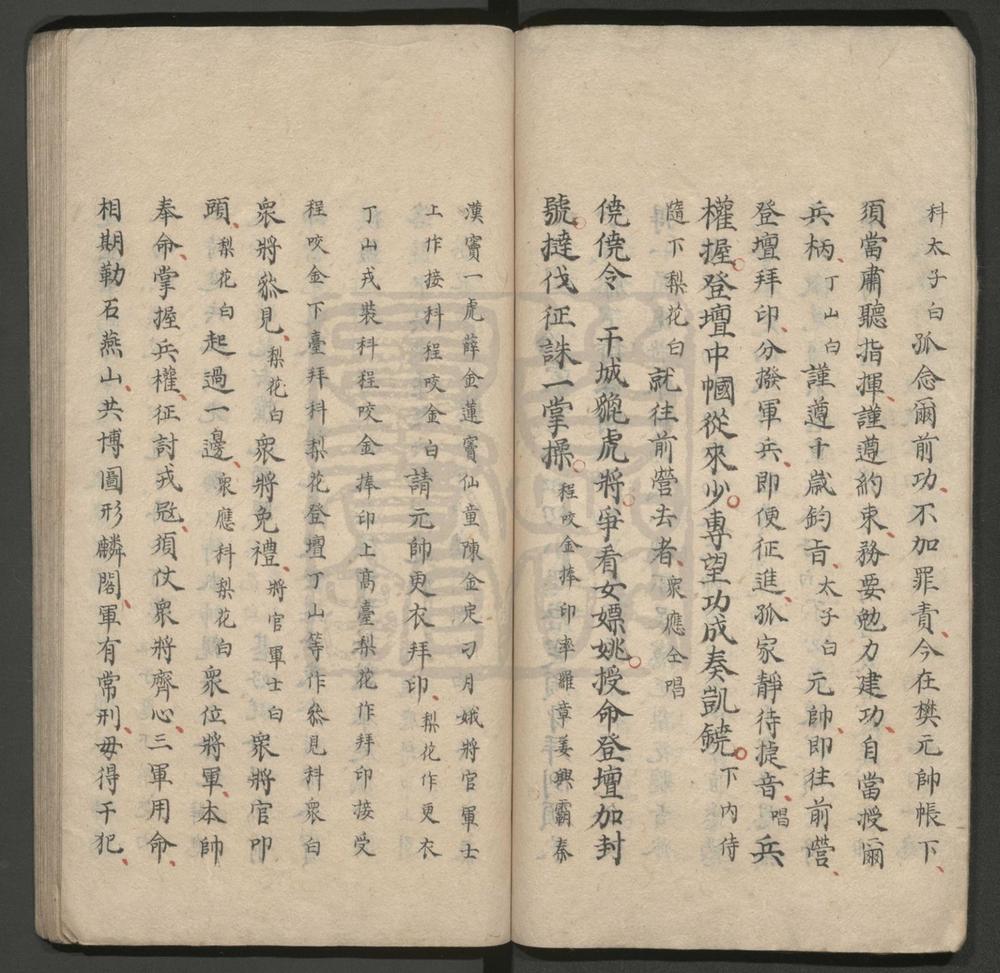 科太子白孤念爾前功、不加罪責、今在樊元帥帳下、
須當肅聽指揮、謹遵約束、務要勉力建功、自當授爾
兵柄、丁山白謹遵千歲鈞旨、太子白元帥、即往前營、
登壇拜印、分撥軍兵、即便征進、孤家靜待捷音、唱兵
權握。登壇巾幗從來少。專望功成奏凱鐃。下內侍
隨下梨花白就往前營去者、衆應仝唱
僥僥令　干城貔虎將。爭看女嫖姚。授命登壇加封
號。撻伐征誅一掌操。程咬金捧印率羅章姜興霸秦
漢竇一虎薛金蓮竇仙童陳金定刁月娥將官軍士
上作接科程咬金白請元帥更衣拜印、梨花作更衣
丁山戎裝科程咬金捧印上高臺梨花作拜印接受
程咬金下臺拜科梨花登壇丁山等作叅見科衆白
衆將叅見、梨花白衆將免禮、將官軍士白　衆將官叩
頭、梨花白起過一邊、衆應科梨花白衆位將軍、本帥
奉命、掌握兵權、征討戎敃、須仗衆將齊心、三軍用命、
相期勒石燕山、共博圖形麟閣、軍有常刑、毋得干犯、